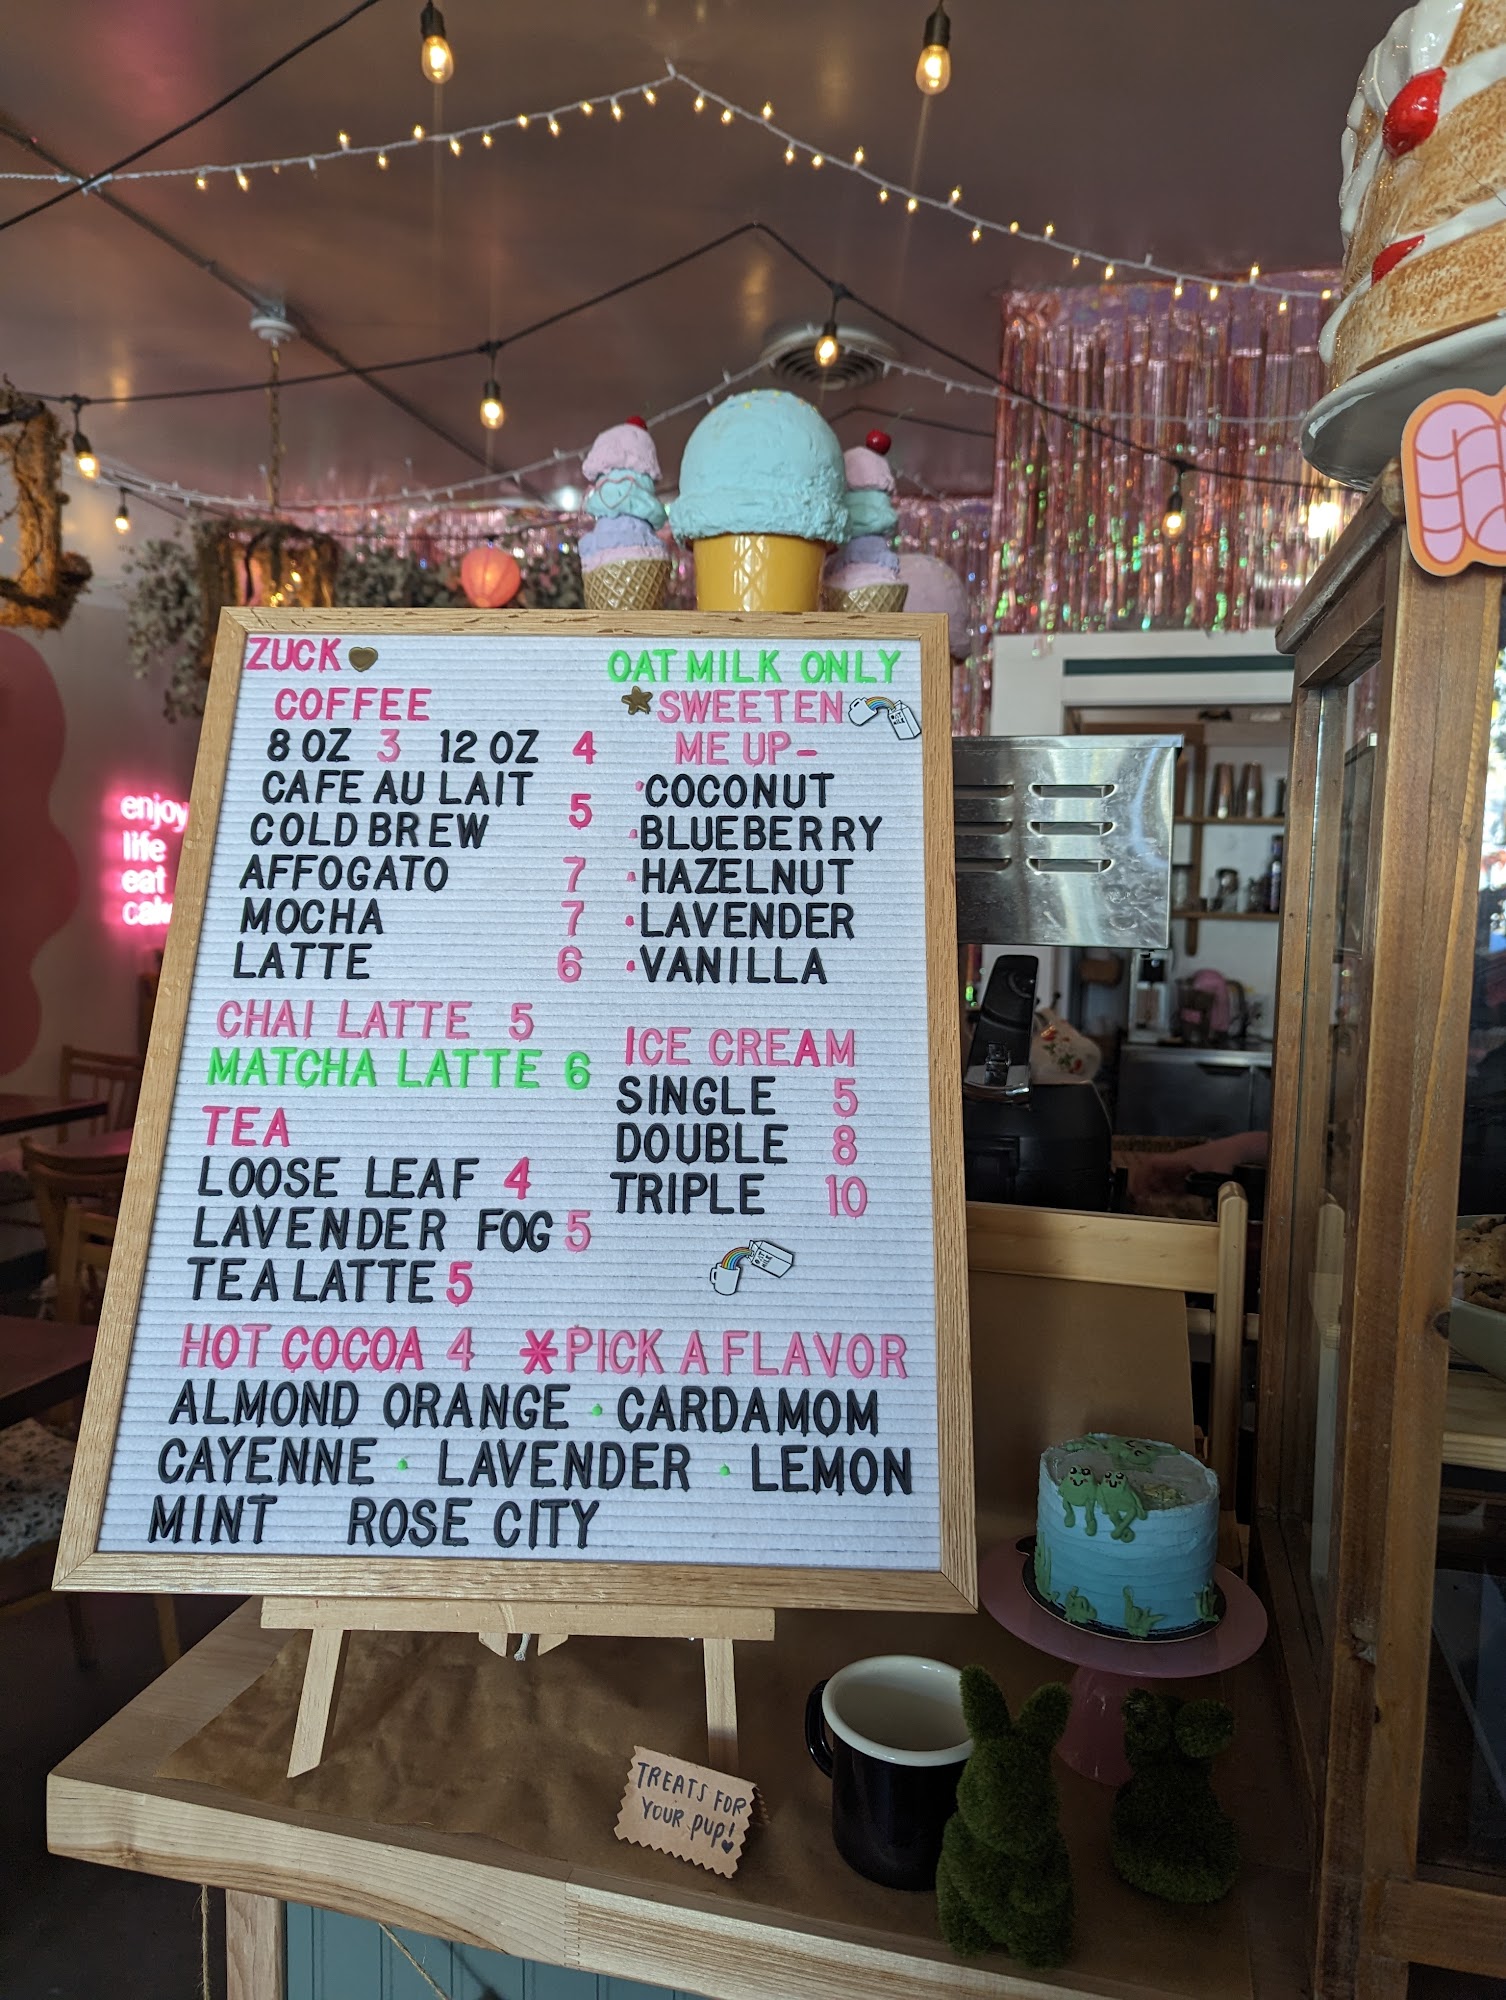 ZUCK
COFFEE
8 OZ 3 12 OZ 4
CAFE AU LAIT
COLD BREW 5
AFFOGATO 7
MOCHA 7
LATTE 6
CHAI LATTE 5
MATCHA LATTE 6
TEA
LOOSE LEAF 4
LAVENDER FOG 5
TEA LATTE 5
OAT MILK ONLY
SWEETEN
ME UP-
COCONUT
BLUEBERRY
HAZELNUT
LAVENDER
VANILLA
ICE CREAM
SINGLE 5
DOUBLE 8
TRIPLE 10
HOT COCOA 4 *PICK A FLAVOR
ALMOND ORANGE · CARDAMOM
CAYENNE · LAVENDER · LEMON
MINT ROSE CITY
enjoy
life
eat
TREATS FOR
YOUR pup!